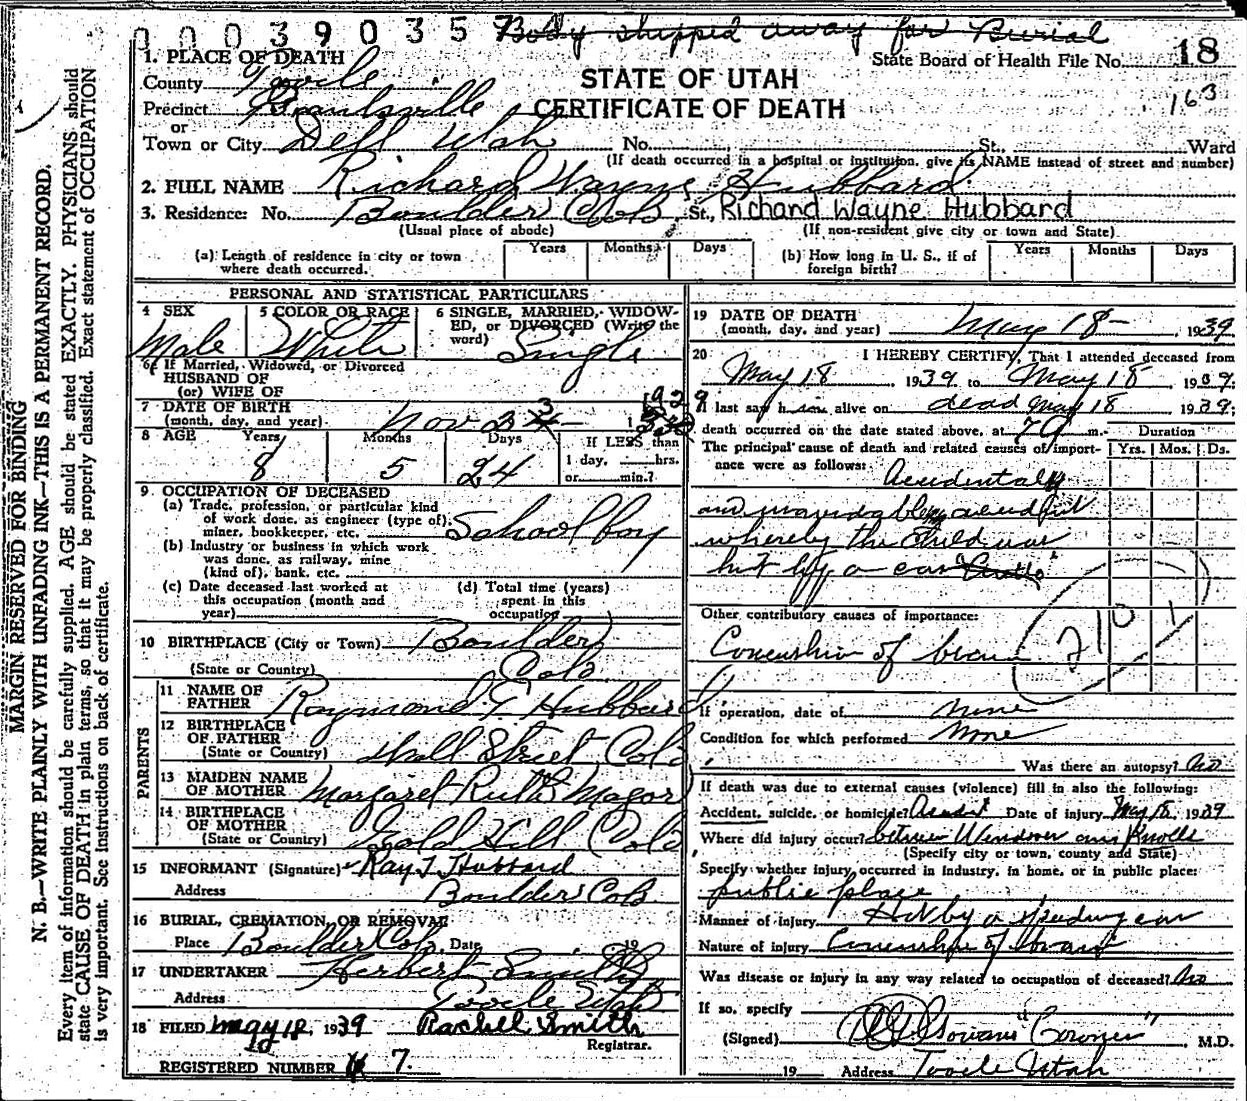 000390357 Body shipped away for Burial
1. PLACE OF DEATH
State Board of Health File No. 18
County Tooele
STATE OF UTAH
163
Precinct
CERTIFICATE OF DEATH
or
Town or City Dell Utah No. St., Ward
(If death occurred in a hospital or institution, give its NAME instead of street and number)
2. FULL NAME Richard Wayne Hubbard
3. Residence: No. Boulder Colo St., Richard Wayne Hubbard
(Usual place of abode) (If non-resident give city or town and State)
(a) Length of residence in city or town where death occurred. Years Months Days
(b) How long in U. S., if of foreign birth? Years Months Days
PERSONAL AND STATISTICAL PARTICULARS
4 SEX Male
5 COLOR OR RACE White
6 SINGLE, MARRIED, WIDOWED, or DIVORCED (Write the word) Single
6a If Married, Widowed, or Divorced
HUSBAND OF
(or) WIFE OF
7 DATE OF BIRTH
(month, day, and year) Nov 1929
8 AGE Years 8 Months 5 Days 24 If LESS than
1 day, hrs.
or min.?
9 OCCUPATION OF DECEASED
(a) Trade, profession, or particular kind
of work done, as engineer (type of),
miner, bookkeeper, etc. School boy
(b) Industry or business in which work
was done, as railway, mine
(kind of), bank, etc.
(c) Date deceased last worked at
this occupation (month and
year)
(d) Total time (years)
spent in this
occupation
10 BIRTHPLACE (City or Town) Boulder
(State or Country) Colo
PARENTS
11 NAME OF
FATHER Raymond T Hubbard
12 BIRTHPLACE
OF FATHER
(State or Country) Wall Street Colo
13 MAIDEN NAME
OF MOTHER Margaret Ruth Magor
14 BIRTHPLACE
OF MOTHER
(State or Country) Gold Hill Colo
15 INFORMANT (Signature) Ray T. Hubbard
Address Boulder Colo
16 BURIAL, CREMATION, OR REMOVAL
Place Boulder Colo. Date 19
17 UNDERTAKER Herbert Smith
Address Tooele Utah
18 FILED May 18, 1939 Rachel Smith
Registrar.
REGISTERED NUMBER 7.
19 DATE OF DEATH
(month, day, and year) May 18 1939
20 I HEREBY CERTIFY, That I attended deceased from
May 18 1939 to May 18 1939;
I last saw h alive on dead May 18 1939;
death occurred on the date stated above, at m. Duration
The principal cause of death and related causes of importance were as follows: Yrs. Mos. Ds.
Accidental
and unavoidable accident
whereby the child was
hit by a car
Other contributory causes of importance:
210 1
Concushion of brain
If operation, date of none
Condition for which performed None
Was there an autopsy? No
If death was due to external causes (violence) fill in also the following:
Accident, suicide, or homicide? Accident Date of injury May 18, 1939
Where did injury occur? between Wendover and Knolls
(Specify city or town, county and State)
Specify whether injury occurred in industry, in home, or in public place:
public place
Manner of injury Hit by a speeding car
Nature of injury Concushion of brain
Was disease or injury in any way related to occupation of deceased? No
If so, specify
(Signed) Gowans "Coroner", M.D.
19 Address Tooele Utah
MARGIN RESERVED FOR BINDING
N. B.—WRITE PLAINLY WITH UNFADING INK—THIS IS A PERMANENT RECORD.
Every item of information should be carefully supplied. AGE should be stated EXACTLY. PHYSICIANS should
state CAUSE OF DEATH in plain terms, so that it may be properly classified. Exact statement of OCCUPATION
is very important. See instructions on back of certificate.